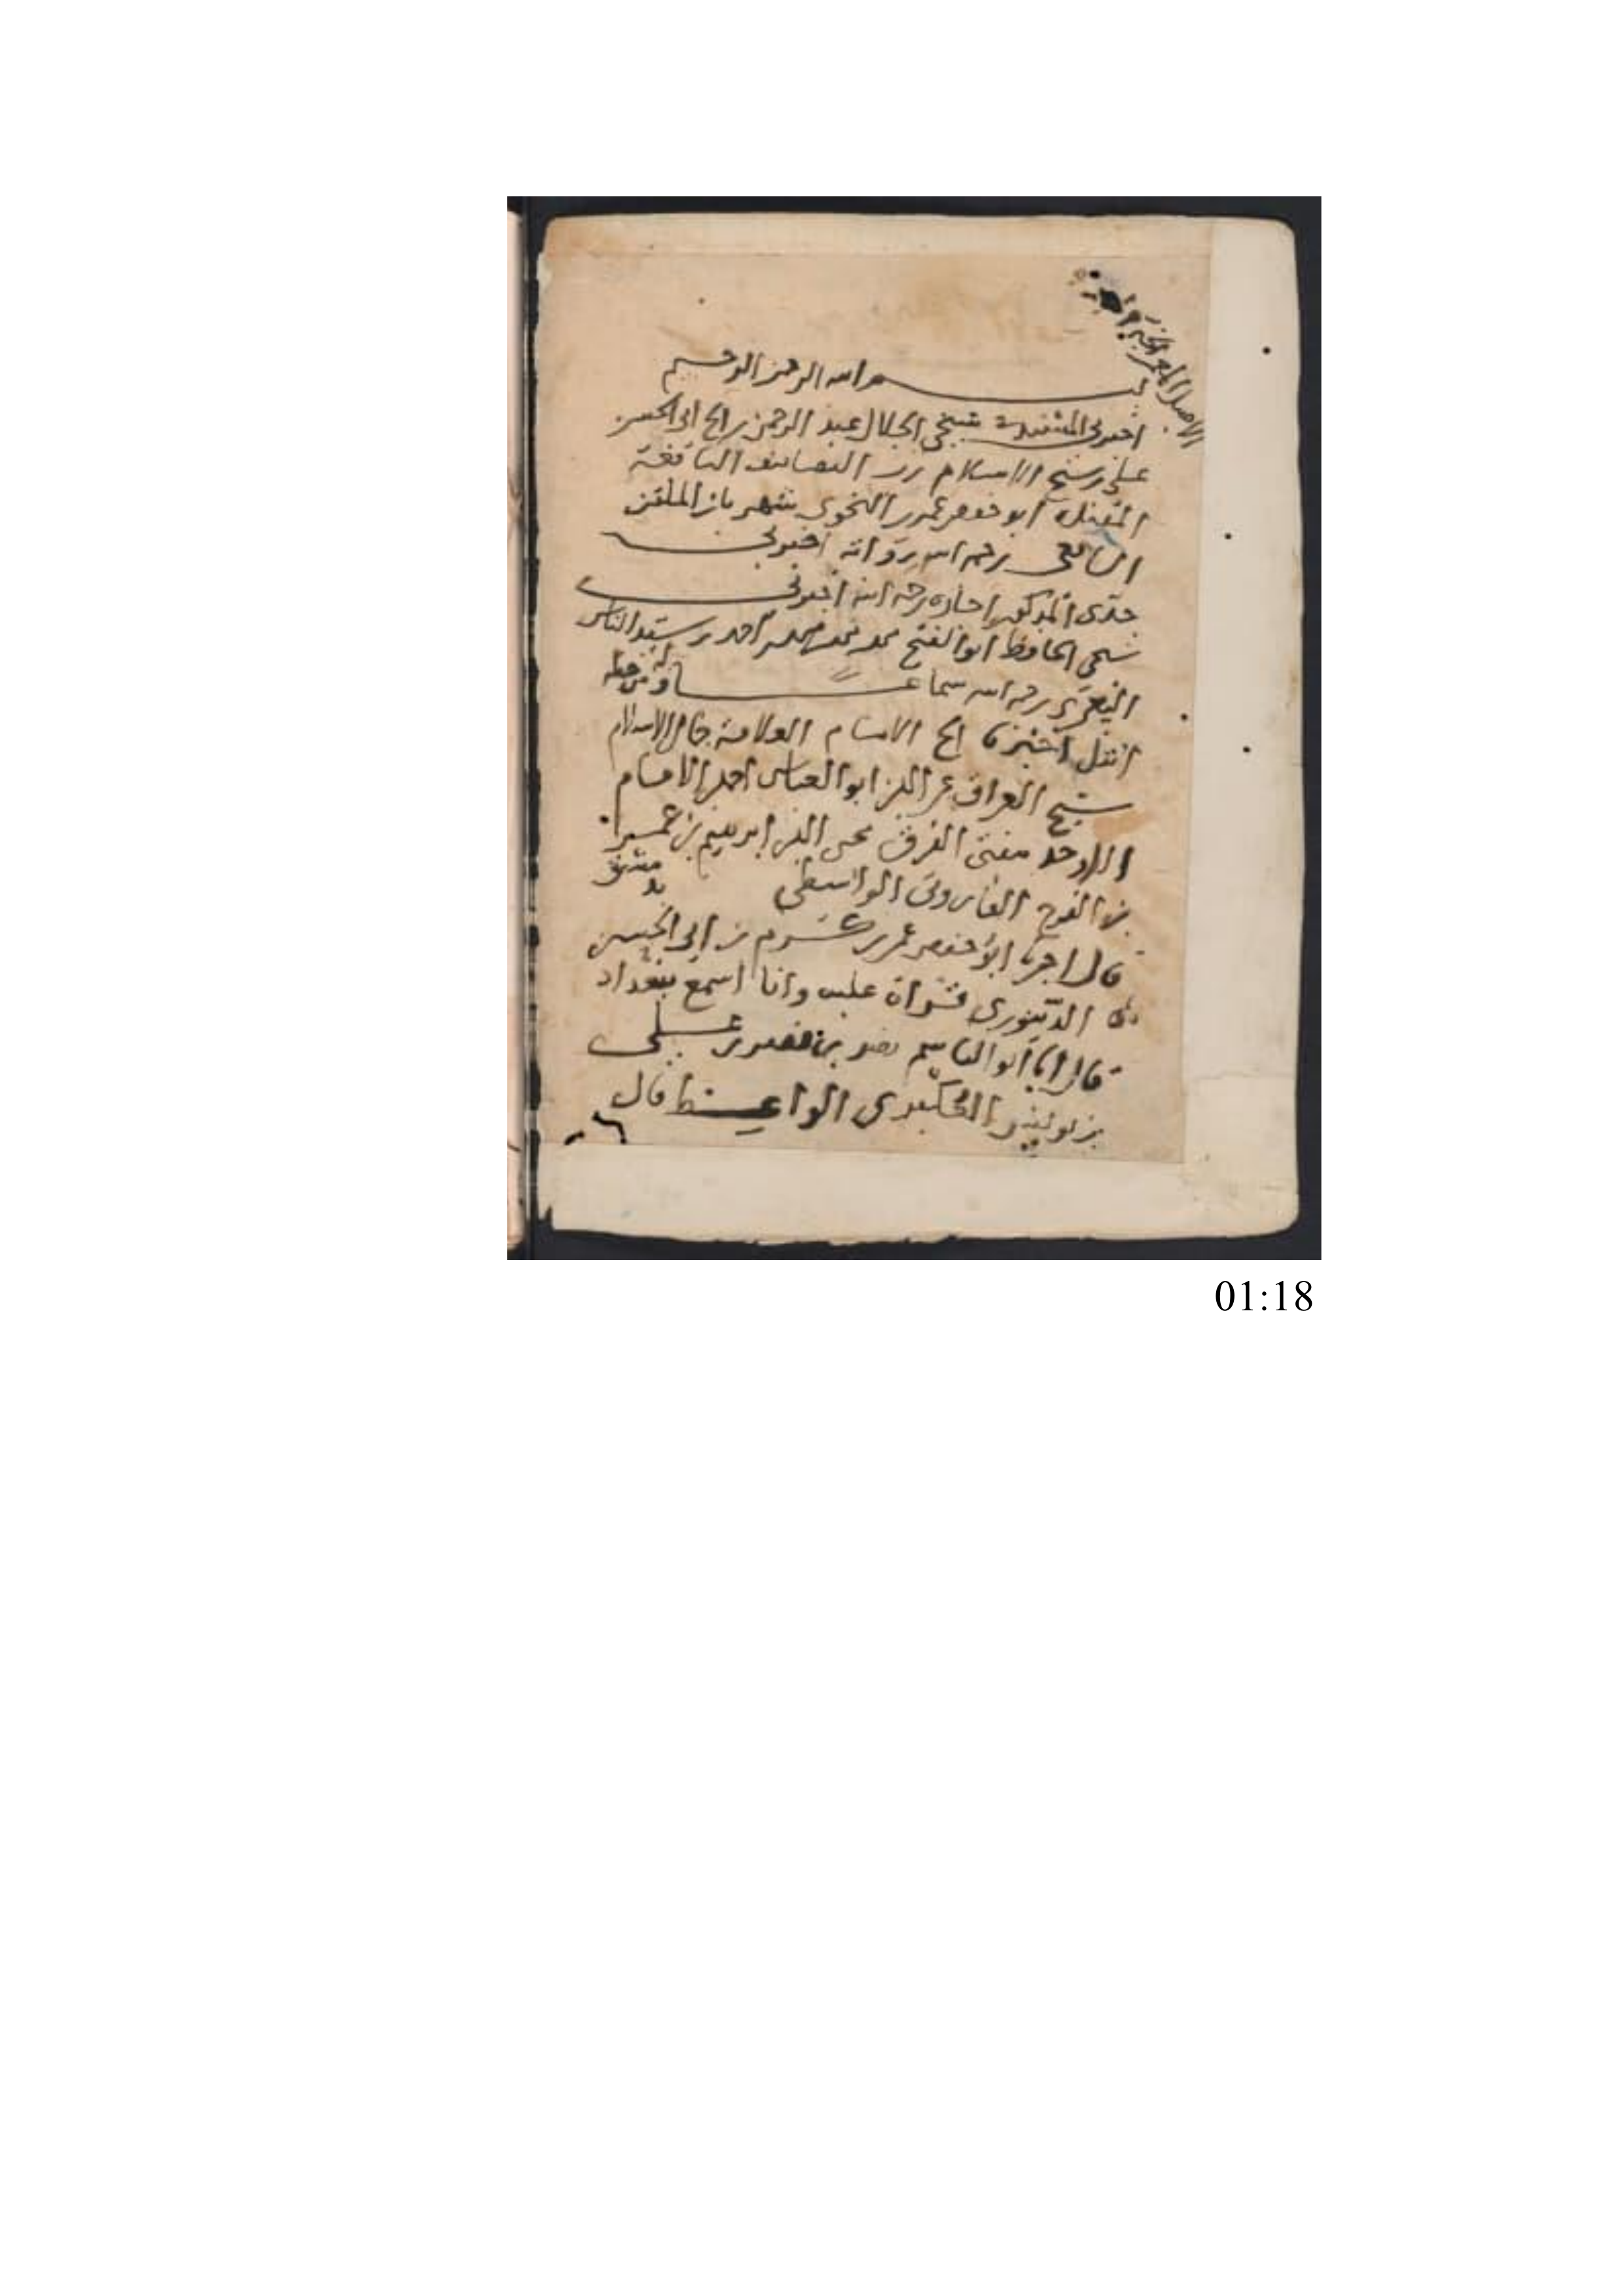 بسم الله الرحمن الرحيم
اخبرني شيخي الجلال عبد الرحمن بن ابي الحسن
علي بن شيخ الاسلام التصانيف النافعة
ابو حفص عمر بن النحوي شهر بابن الملقن
الشافعي رحمه الله اخبرني
جدي المذكور اجازة رحمه الله اخبرني
شيخي الحافظ ابو الفتح محمد بن محمد بن محمد بن احمد بن سيد الناس
اليعمري رحمه الله سماعا ومن خطه
انقل اخبرنا الامام العلامة جمال الاسلام
شيخ العراق عز الدين ابو العباس احمد بن الامام
الاوحد مفتي الفرق محيي الدين ابرهيم بن عمر
بن الفرج الفاروثي الواسطي بدمشق
قال اخبرنا ابو حفص عمر بن كرم بن ابي الحسن
الدينوري قراة عليه وانا اسمع ببغداد
قال انا ابو القاسم نصر بن نصر بن علي
بن يونس العكبري الواعظ قال
01:18